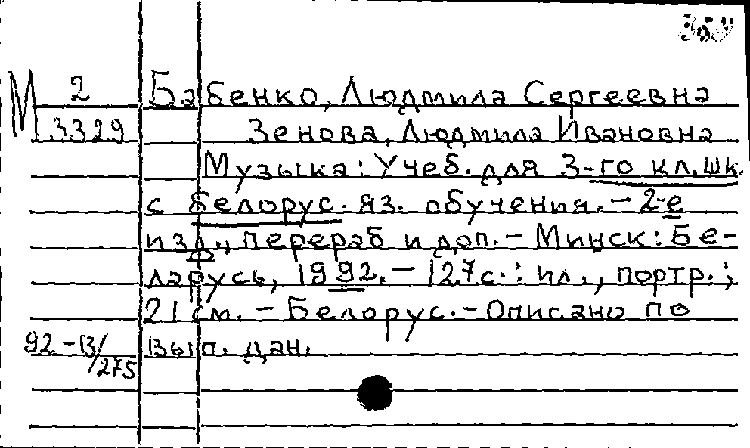 М 2 Бабенко, Людмила Сергеевна
3329 Зенова, Людмила Ивановна
Музыка: Учеб. для 3-го кл. шк.
с белорус. яз. обучения. - 2-е
изд., перераб и доп. - Минск: Бе-
ларусь, 1992. - 127с.: ил., портр.;
21 см. - Белорус. - Описано по
92-13/275 вып. дан.